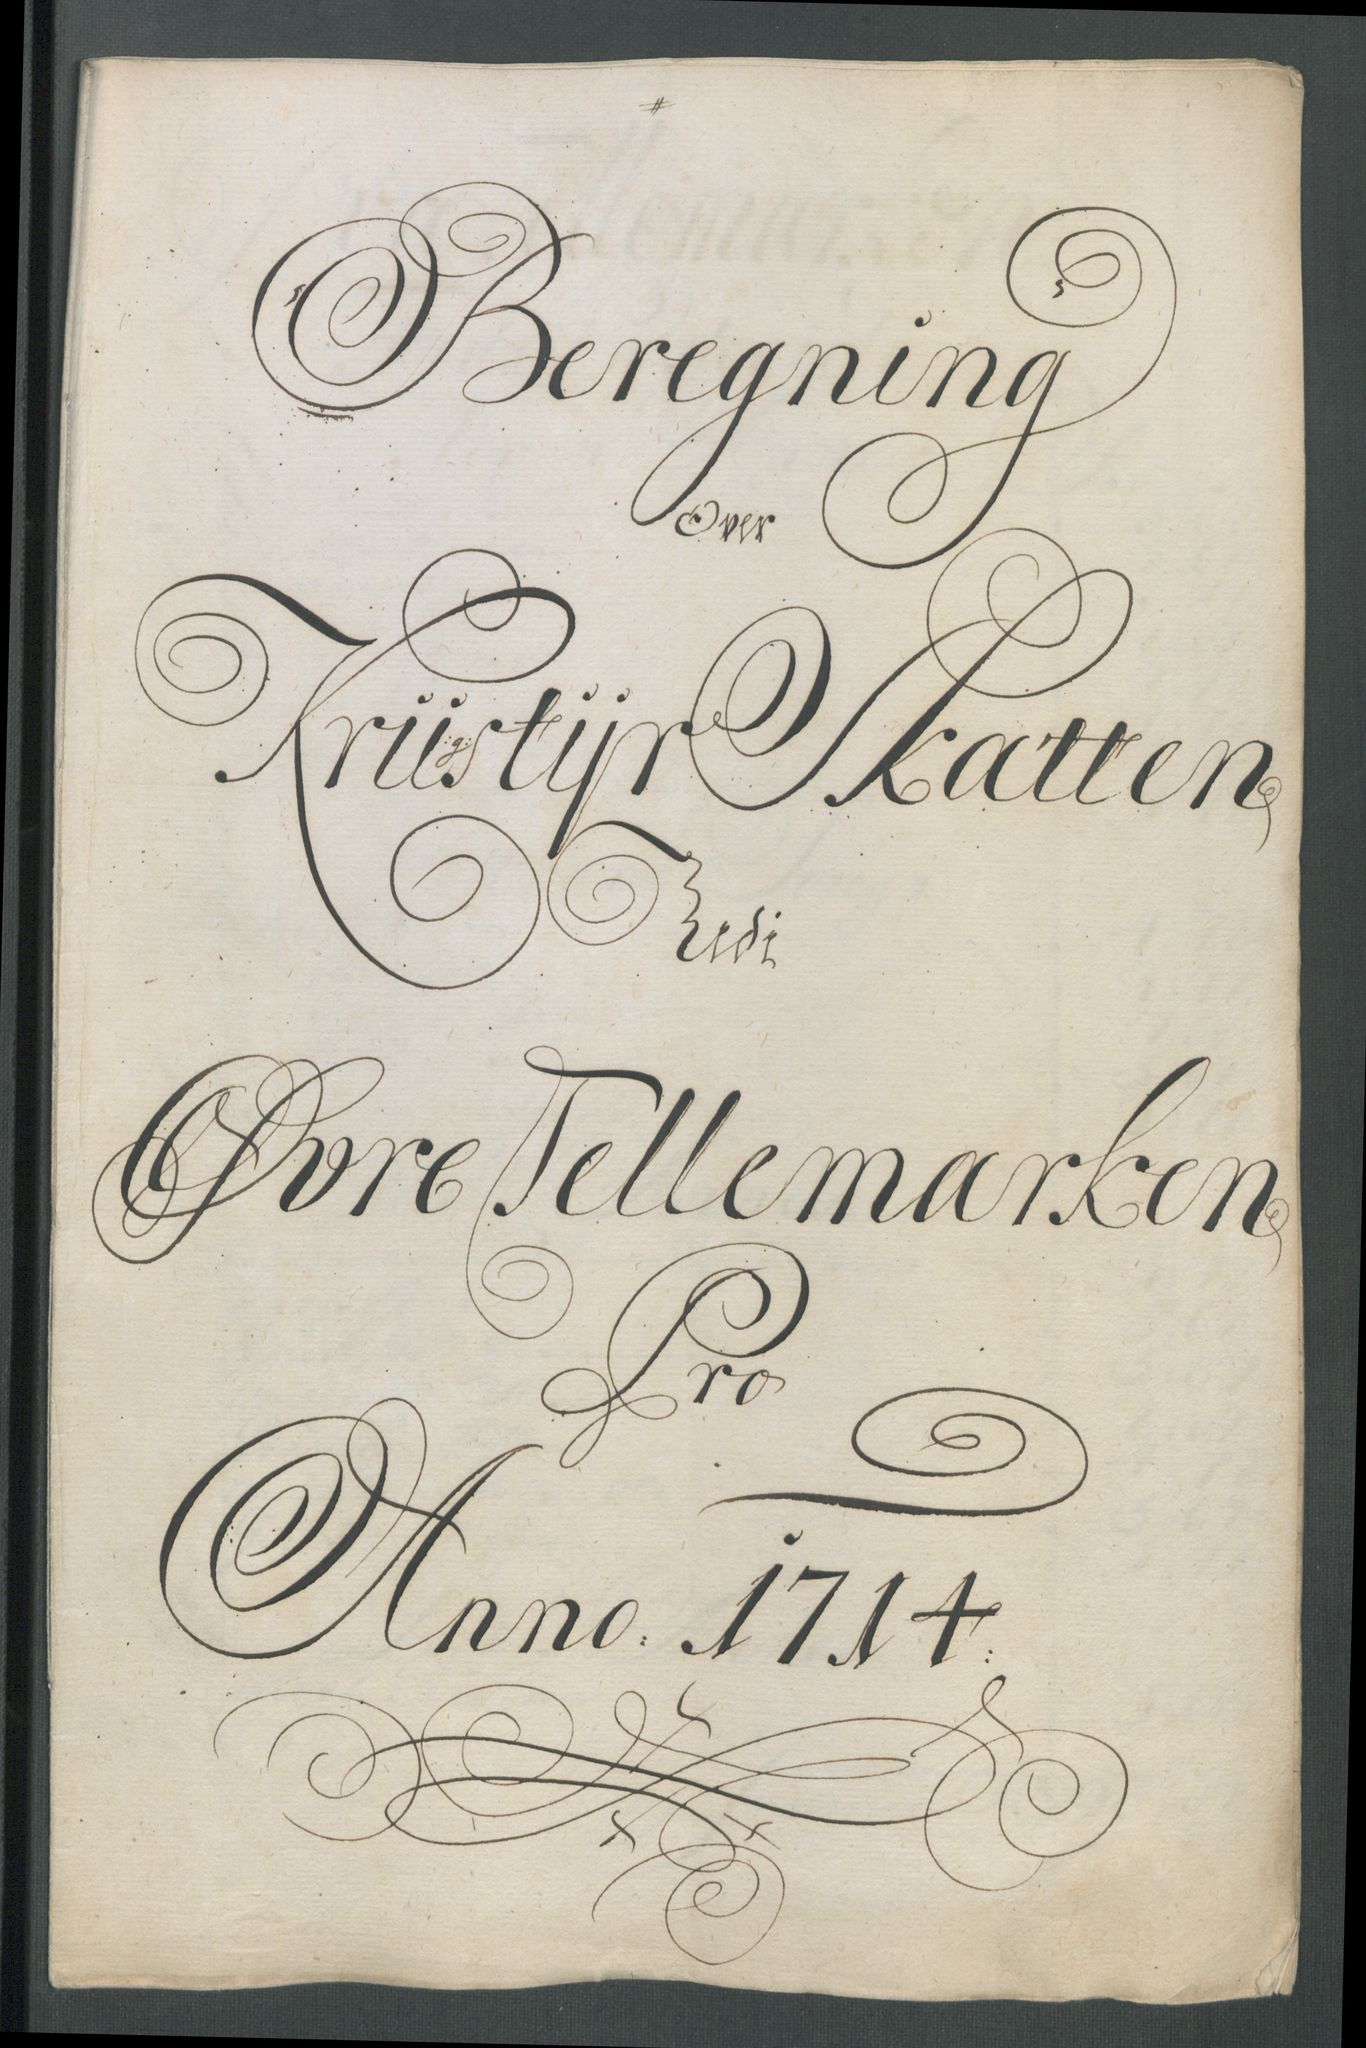 #
Beregning
Over
Kriigstijr Skatten
Udi
Øvre Tellemarken
Pro
Anno: 1714: